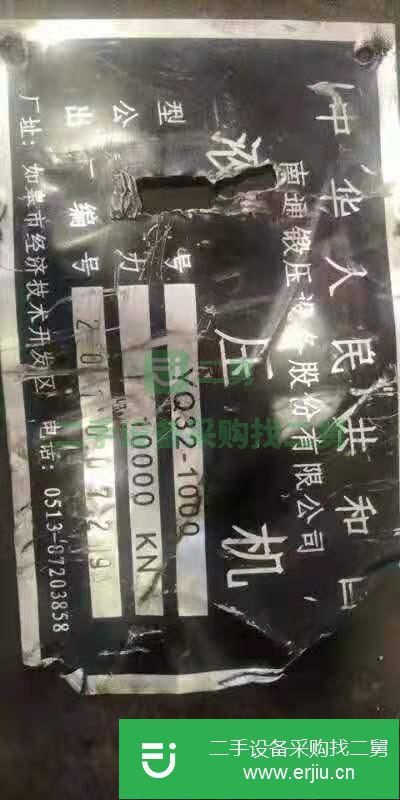 中华人民共和
南通锻压设备股份有限公司
液压机
型号 YQ32-1000
公 力 10000 KN
出 编号
厂址：如皋市经济技术开发区 电话：0513-87203858
二舅
二手设备采购找二舅
二手设备采购找二舅
www.erjiu.cn